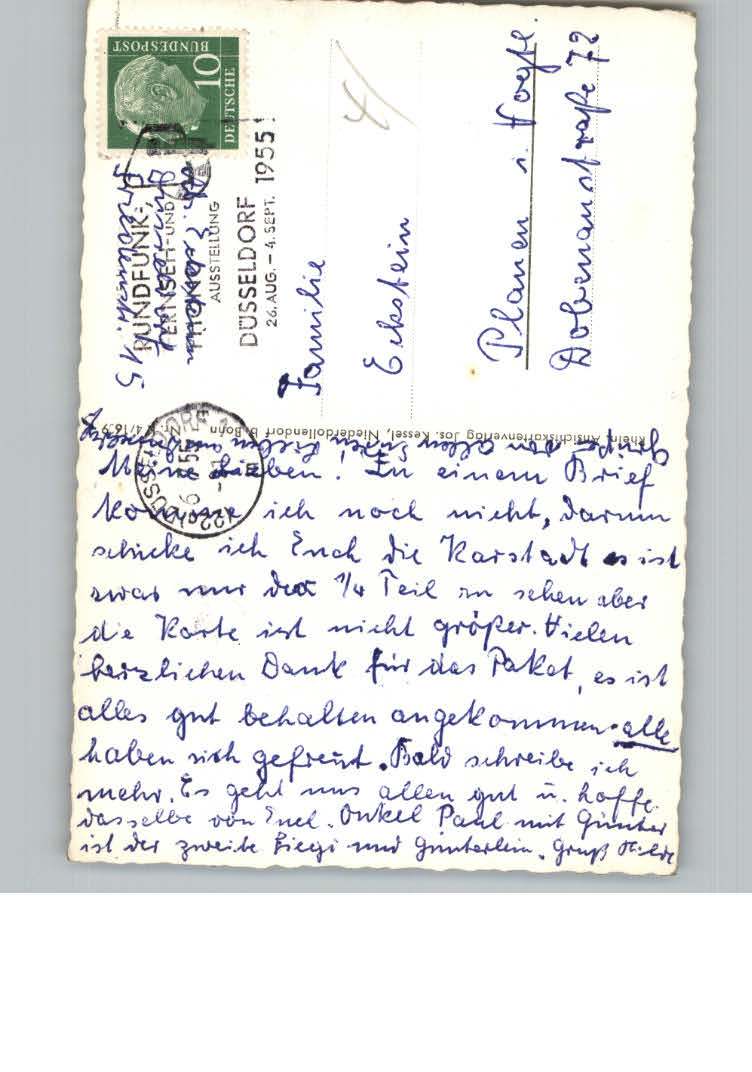 DEUTSCHE
BUNDESPOST
10
RUNDFUNK-,
FERNSEH-UND
PHONO
AUSSTELLUNG
DÜSSELDORF
26. AUG. – 4. SEPT. 1955!
DÜSSELDORF
Eckstein
Düsseldorf
15
Familie
Eckstein
Plauen i. Vogtl.
Dobenaustraße 72
Rhein. Ansichtskartenverlag Jos. Kessel, Niederdollendorf b. Bonn
Grüße von allen
Meine Lieben! Zu einem Brief
komme ich noch nicht, darum
schicke ich Euch die Karstadt es ist
zwar nur der 1/4 Teil zu sehen aber
die Karte ist nicht größer. Vielen
herzlichen Dank für das Paket, es ist
alles gut behalten angekommen. alle
haben sich gefreut. Bald schreibe ich
mehr. Es geht uns allen gut u. hoffe
dasselbe von Euch. Onkel Paul mit Günter
ist der zweite und Günterlein. Gruß Hilde